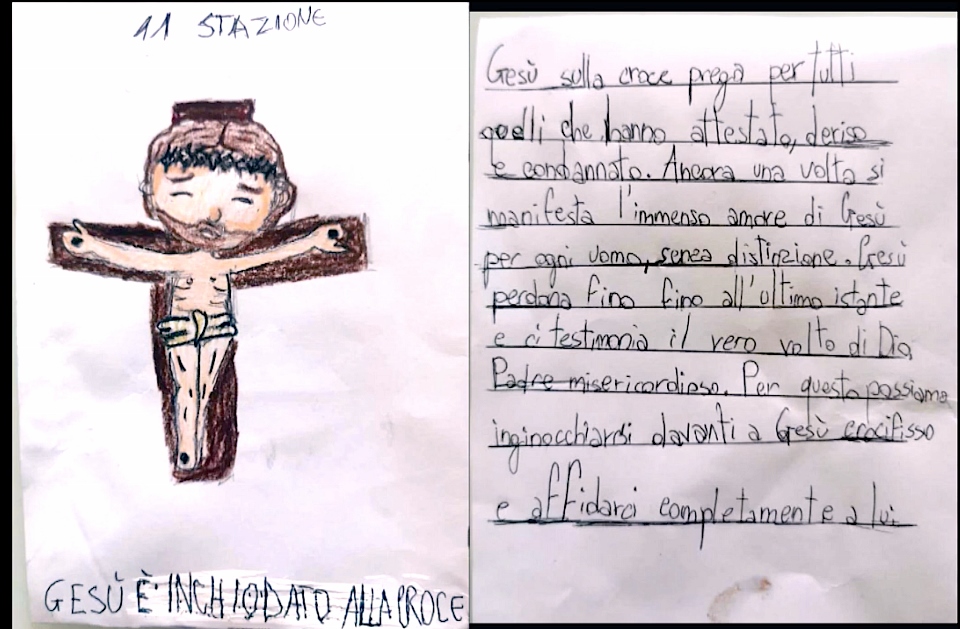 11 STAZIONE
GESÙ È INCHIODATO ALLA CROCE
Gesù sulla croce prega per tutti
quelli che hanno attestato, deriso
e condannato. Ancora una volta si
manifesta l'immenso amore di Gesù
per ogni uomo, senza distinzione. Gesù
perdona fino fino all'ultimo istante
e ci testimonia il vero volto di Dio
Padre misericordioso. Per questo possiamo
inginocchiarci davanti a Gesù crocifisso
e affidarci completamente a lui.